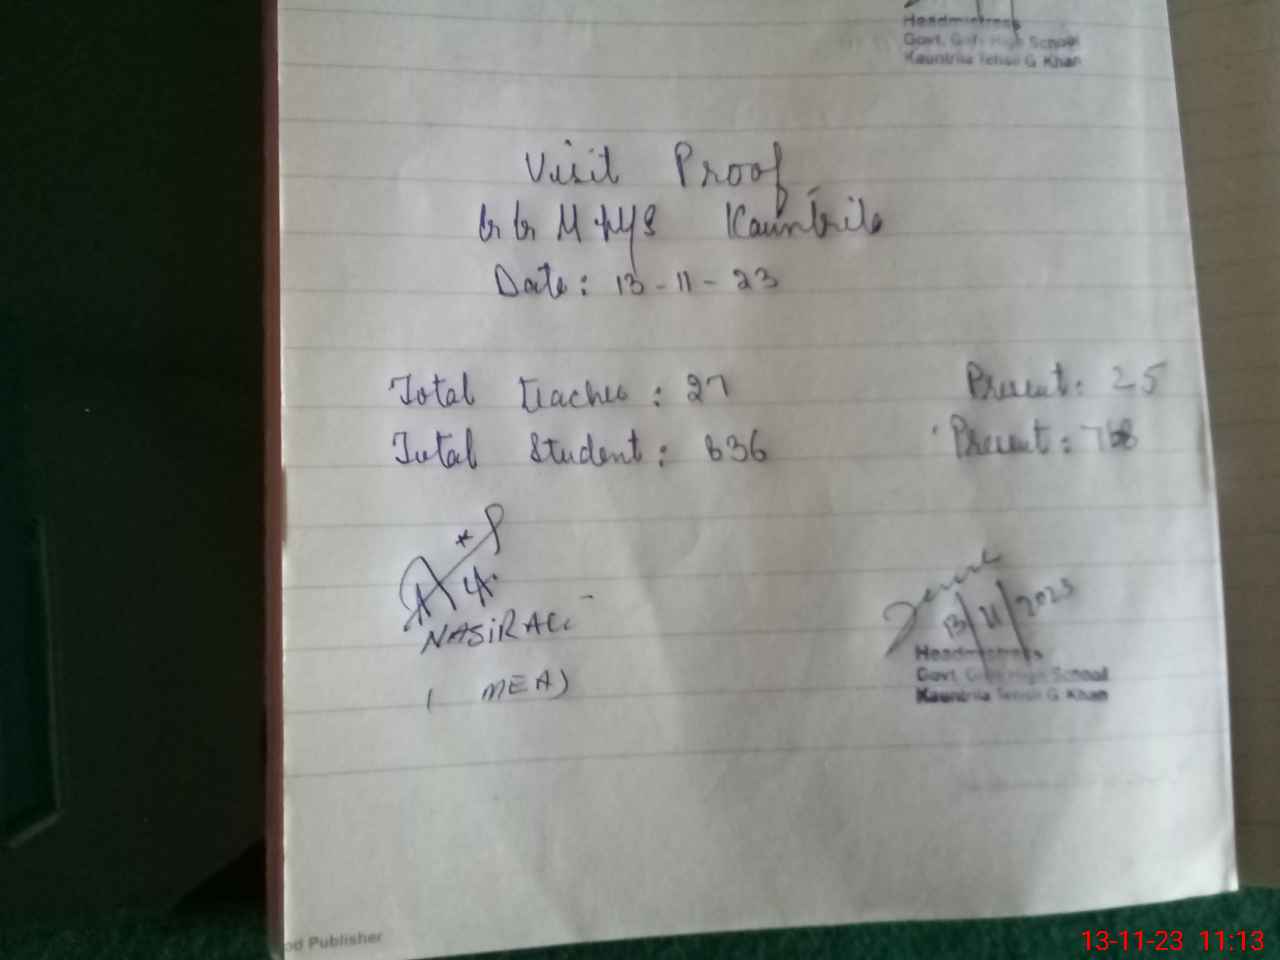 Headmistress
Govt. Girls High School
Kauntrila Tehsil G Khan
Visit Proof
GGHHS Kauntrila
Date: 13-11-23
Total Teacher: 27 Present: 25
Total Student: 836 Present:
NASIR ALi
(MEA)
13/11/2023
Headmistress
Govt. Girls High School
Kauntrila Tehsil G Khan
od Publisher
13-11-23 11:13